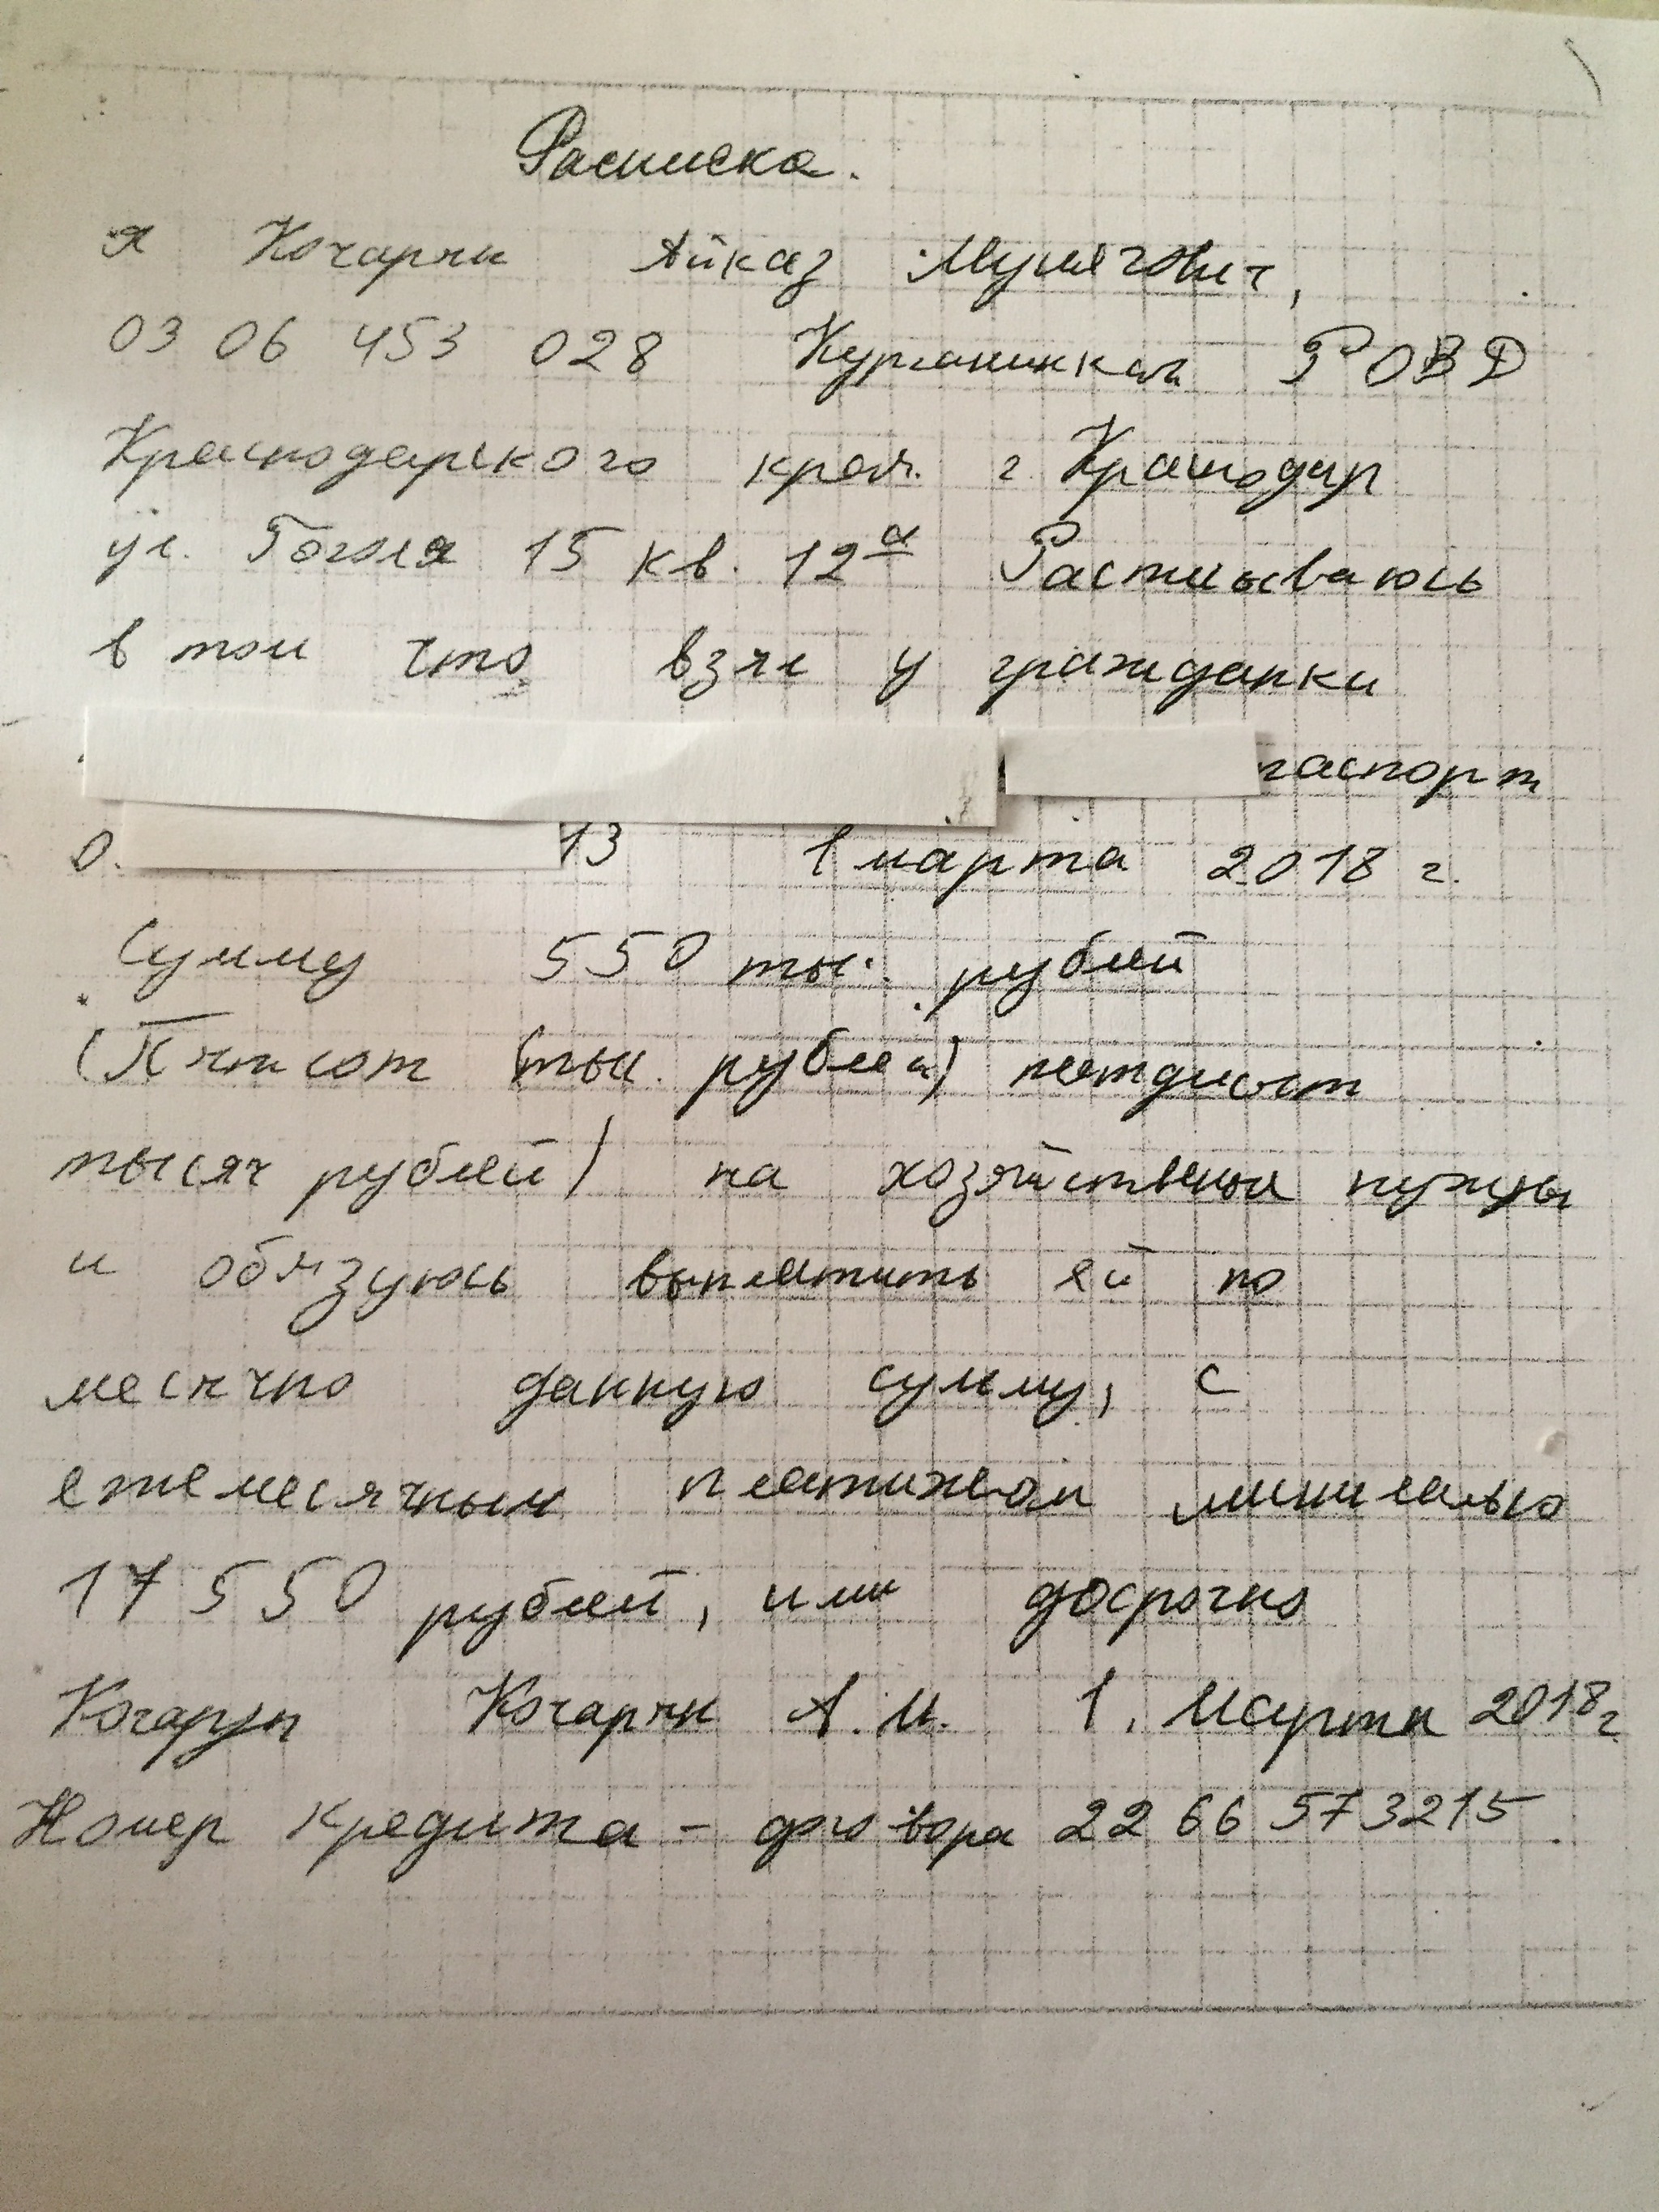 Расписка.
я Кочарян Айказ
03 06 453 028 РОВД
Краснодарского края. г. Краснодар
ул. Гоголя 15 кв. 12а Расписываюсь
в том что взял у гражданки
паспорт
0. 13 1 марта 2018 г.
Сумму 550 тыс. рублей
(Пятьсот (тыс. рублей)
тысяч рублей) на нужды
и обязуюсь выплатить ей по
месячно данную сумму, с
ежемесячным платижом
17 550 рублей, или досрочно
Кочарян Кочарян А.М. 1. Марта 2018г
Номер кредита - договора 22 66 573215.